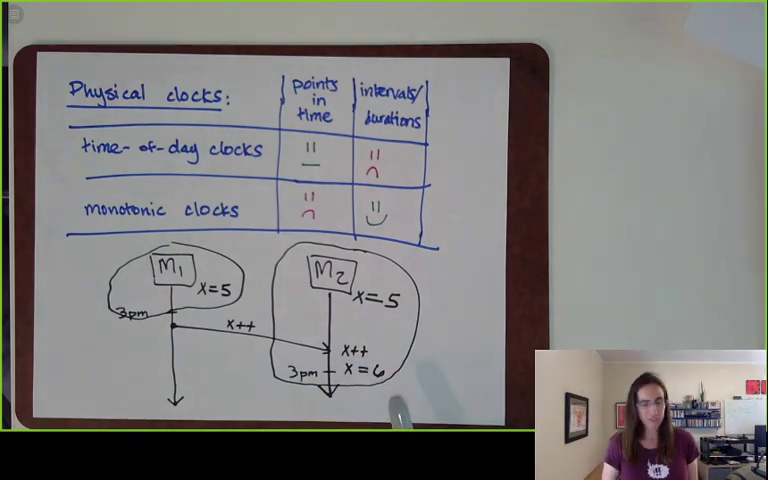 Physical clocks:
points in time
intervals/ durations
time-of-day clocks
monotonic clocks
M1
X=5
3pm
X++
M2
X=5
X++
3pm
X=6